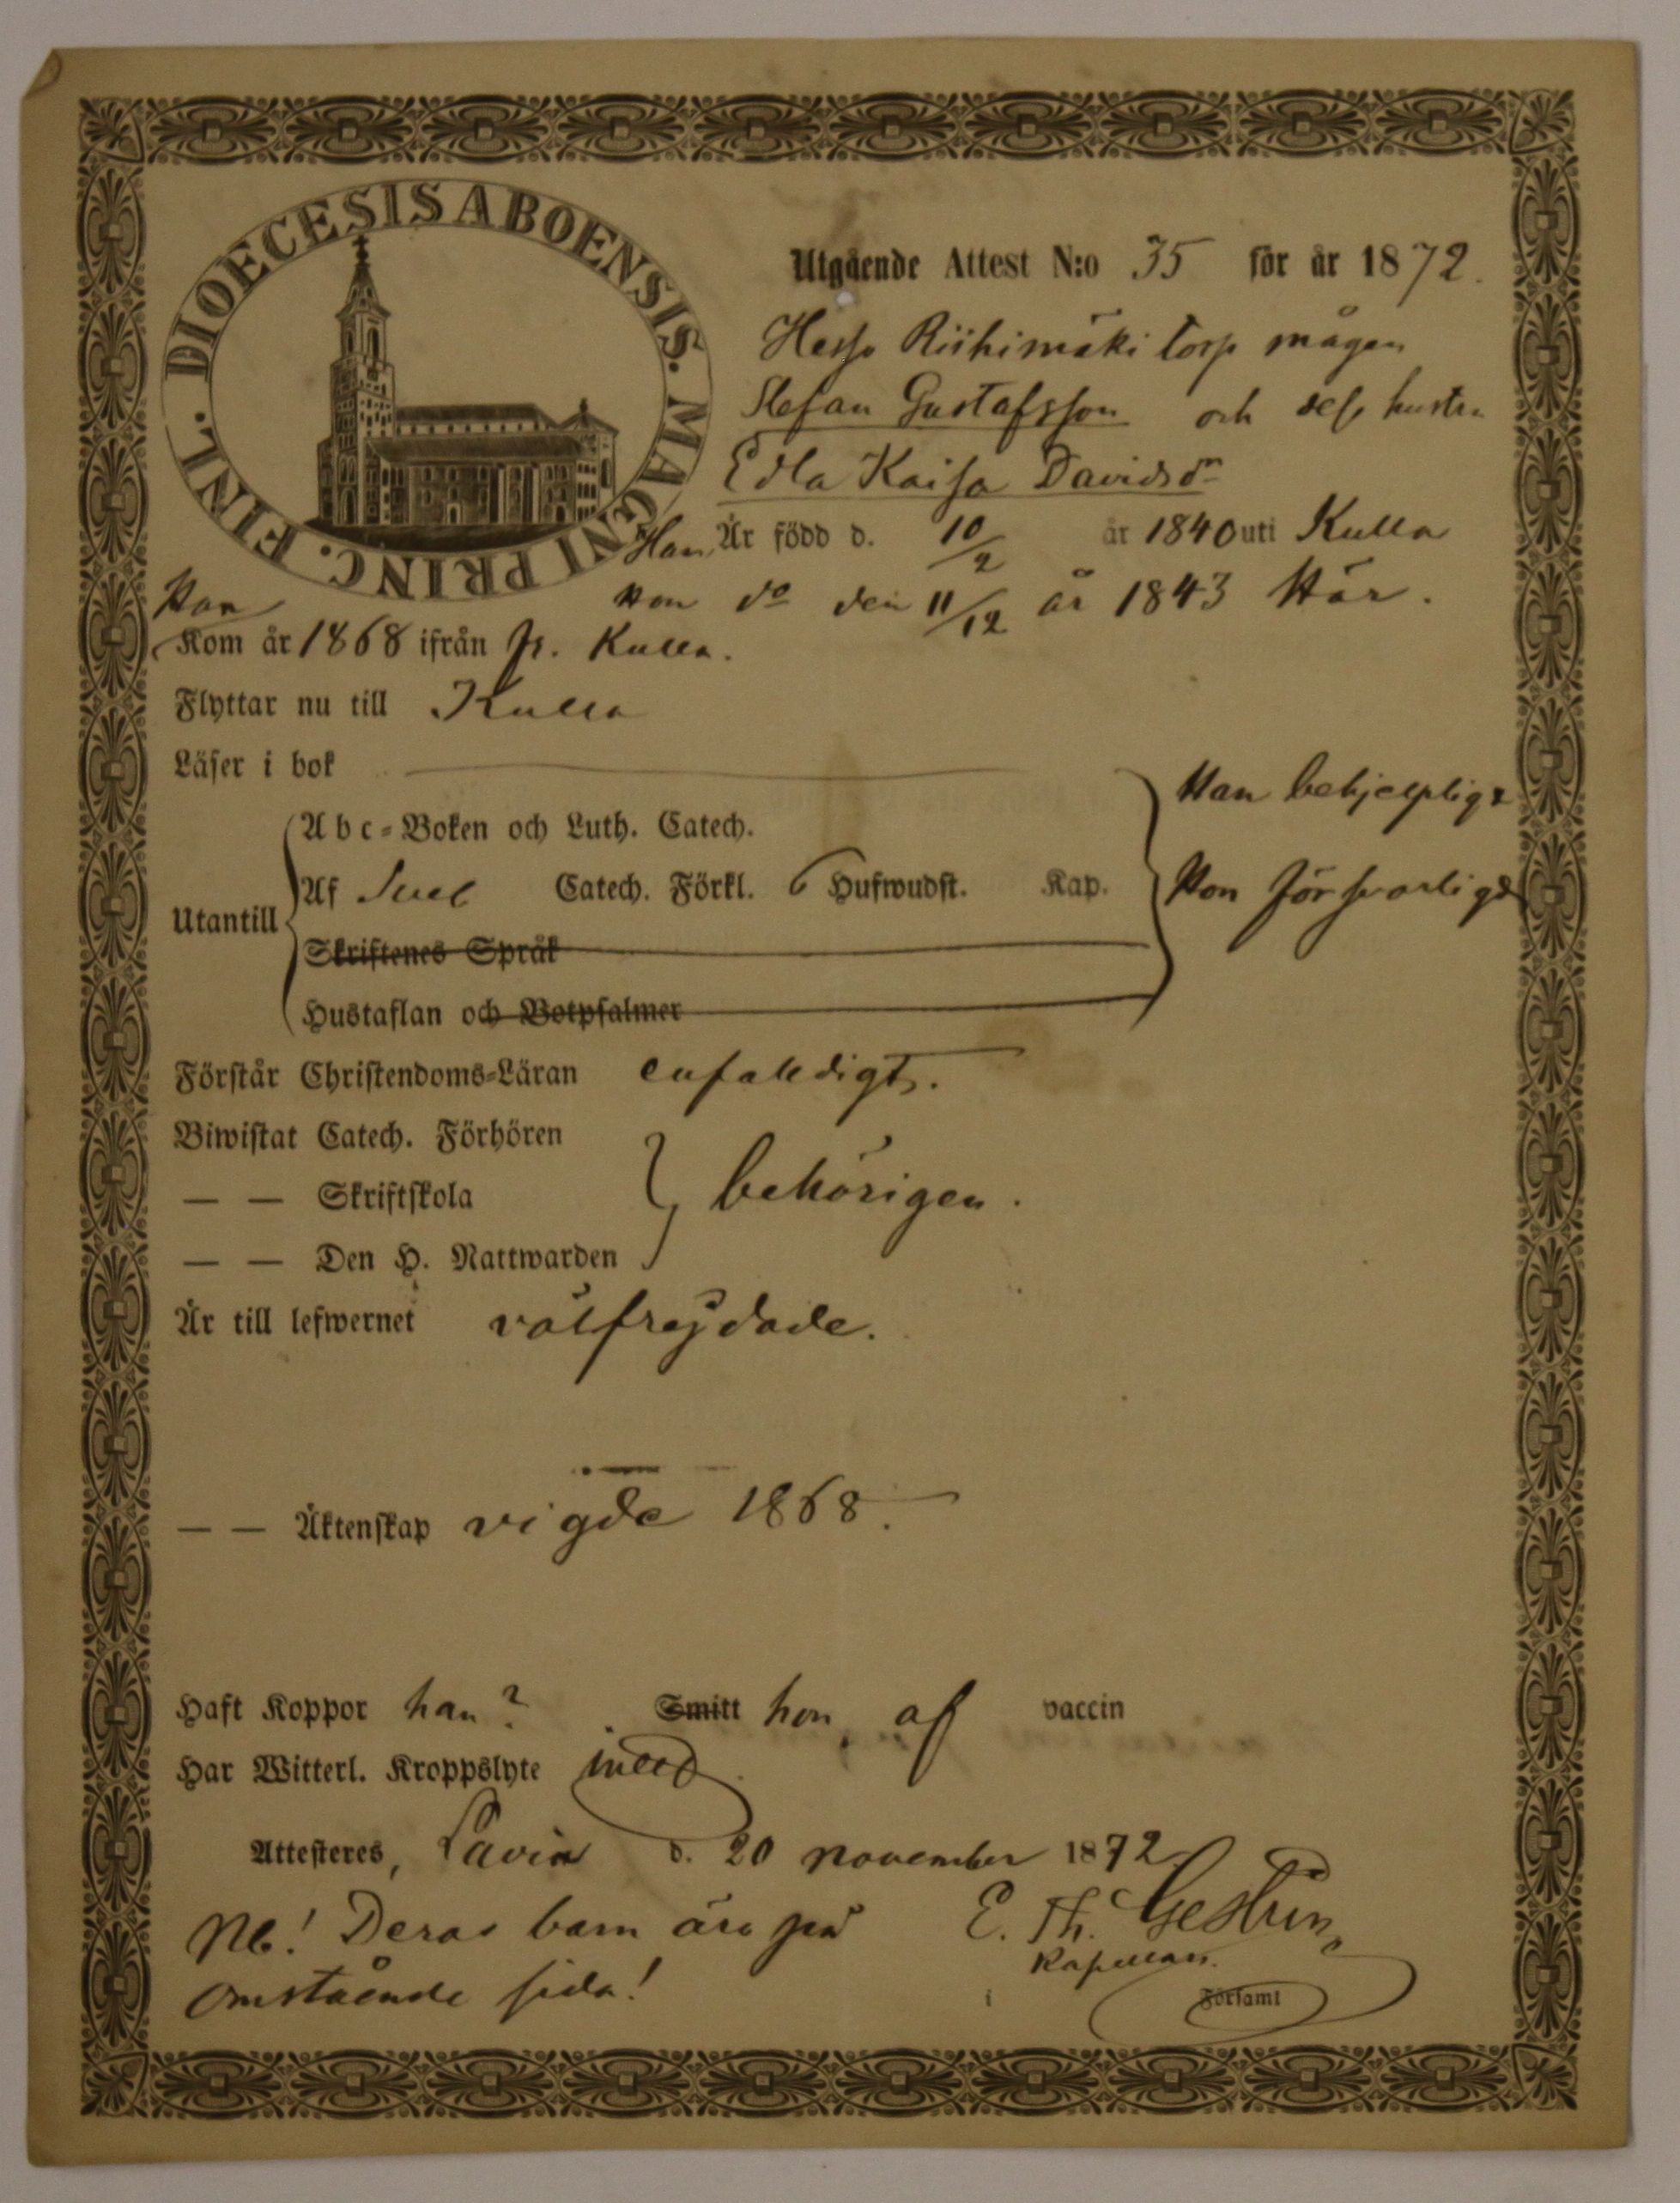 DIOECESIS ABOENSIS. MAGNI PRINC. FINL.
Utgående Attest N:o 35 för år 1872.
Hesso Riihimäki torp mågen
Stefan Gustafsson och dess hustru
Edla Kaisa Davidsdr
Han Är född d. 10/2 år 1840 uti Kulla
Hon do den 11/12 år 1843 Här.
Han
Kom år 1868 ifrån fr. Kulla.
Flyttar nu till Kulla
Läser i bok
Utantill
Abc-Boken och Luth. Catech.
Af Sveb Catech. Förkl. 6 Hufwudst. Kap.
Skriftenes Språk
Hustaflan och Botpsalmer
Han behjelpligt
Hon försvarligt
Förstår Christendoms-Läran enfaldigt.
Biwistat Catech. Förhören
— — Skriftskola
— — Den H. Nattwarden
behörigen.
Är till lefwernet välfrejdade.
— — Äktenskap vigde 1868.
Haft Koppor han? Smitt hon af vaccin
Har Witterl. Kroppslyte intet
Attesteres, Lavia d. 20 november 1872
NB! Deras barn äro på
omstående sida!
E. Th. Gestrin
Kapellan.
i Församl